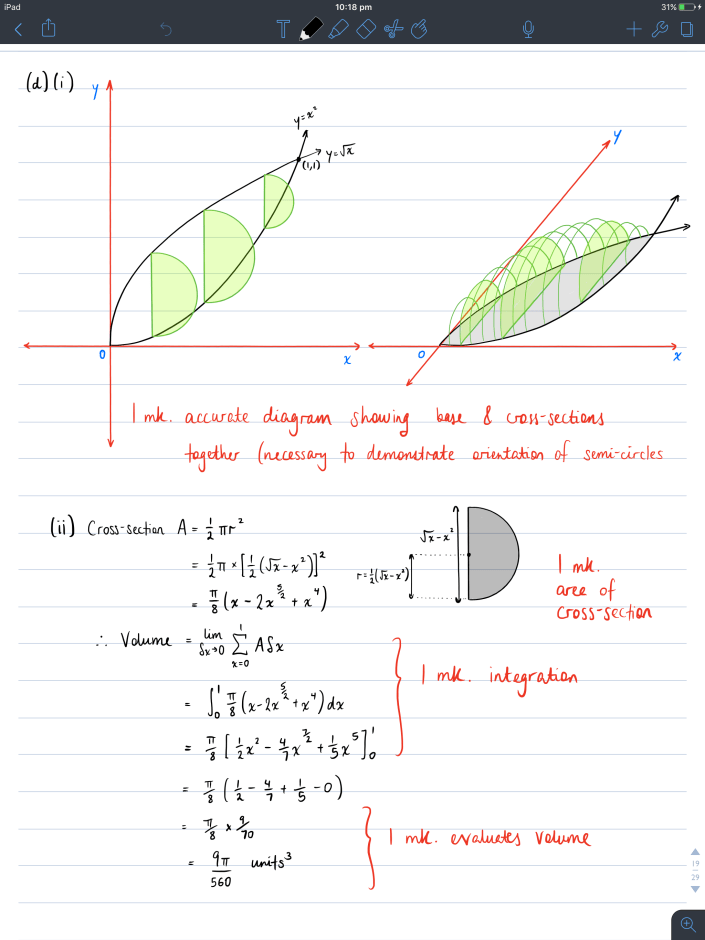 iPad
10:18 pm
31%
T
(d) (i)
y
y=x²
y=√x
(1,1)
0
x
y
0
x
1 mk. accurate diagram showing base & cross-sections
together (necessary to demonstrate orientation of semi-circles
(ii) Cross-section A = ½ πr²
= ½π × [½(√x - x²)]²
= π/8 (x - 2x^(5/2) + x⁴)
√x - x²
r = ½(√x - x²)
1 mk.
area of
cross-section
∴ Volume = lim δx→0 Σ x=0 1 Aδx
= ∫₀¹ π/8 (x - 2x^(5/2) + x⁴) dx
= π/8 [½x² - 4/7 x^(7/2) + 1/5 x⁵]₀¹
1 mk. integration
= π/8 (½ - 4/7 + 1/5 - 0)
= π/8 × 9/70
= 9π/560 units³
1 mk. evaluates volume
19
29